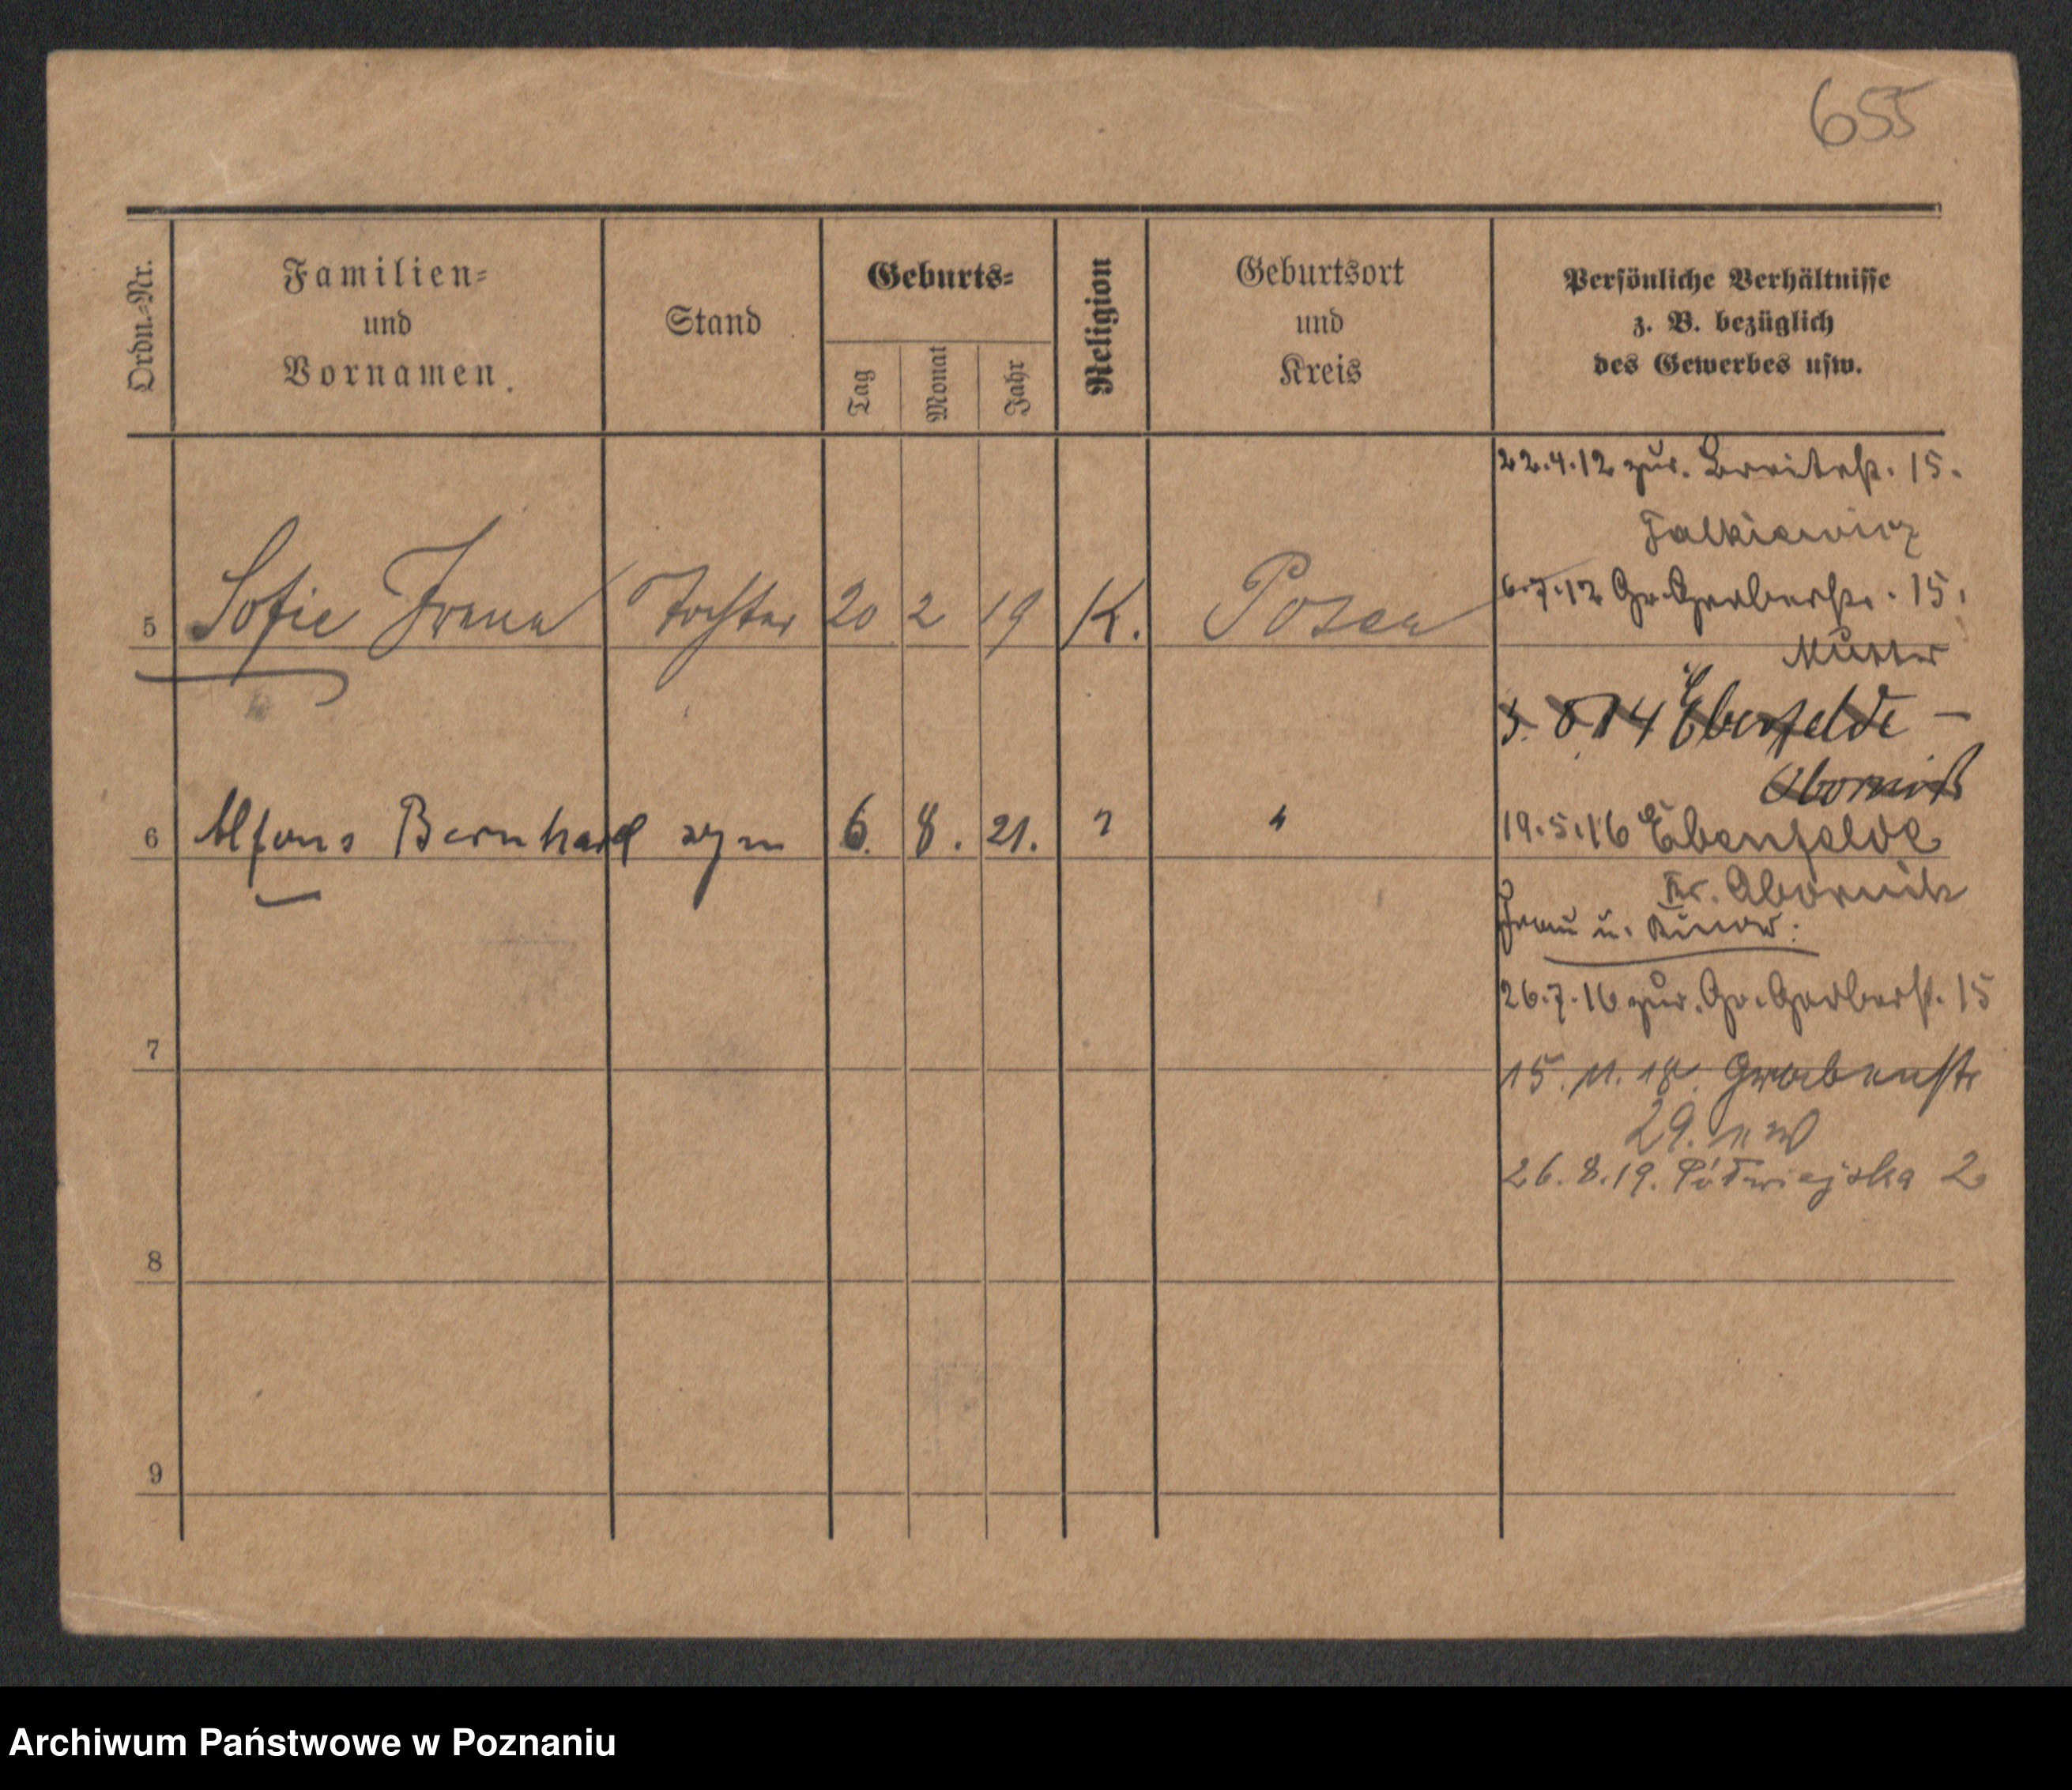 655
Ordn.=Nr.
Familien=
und
Vornamen.
Stand
Geburts=
Tag
Monat
Jahr
Religion
Geburtsort
und
Kreis
Persönliche Verhältnisse
z. B. bezüglich
des Gewerbes usw.
22.4.12 zur. Breitestr. 15.
Falkiewicz
6.7.12 Gr. Gerberstr. 15.
Mutter
5 Sofie Irena Tochter 20 2 19 K. Posen
3. 8 14 Ebenfelde –
Obornik
6 Alfons Bernhard syn 6. 8. 21. " "
19.5.16 Ebenfelde
Kr. Obornik
Frau u. Kinder:
26.7.16 zur. Gr. Gerberstr. 15
7
15. 11. 18. Grabenstr
29.
26. 8. 19. Półwiejska 2
8
9
Archiwum Państwowe w Poznaniu